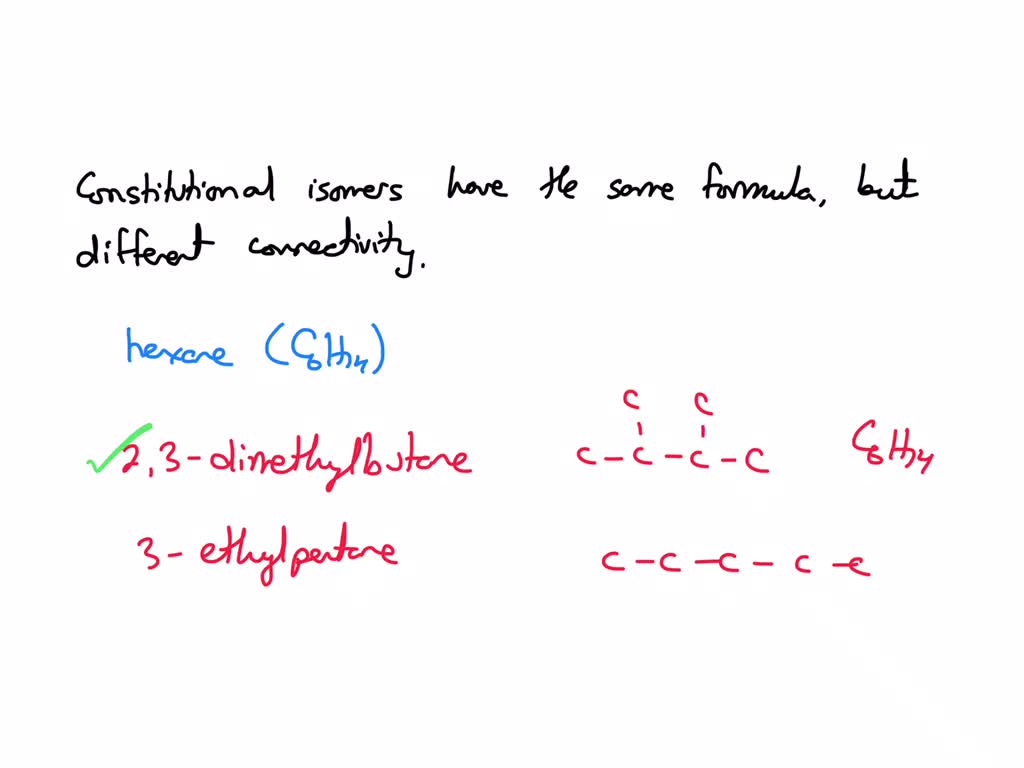 Constitutional isomers have the same formula, but
different connectivity.
hexane (C₆H₁₄)
C C
✓2,3-dimethylbutane C-C-C-C C₆H₁₄
3-ethylpentane C-C-C-C-C